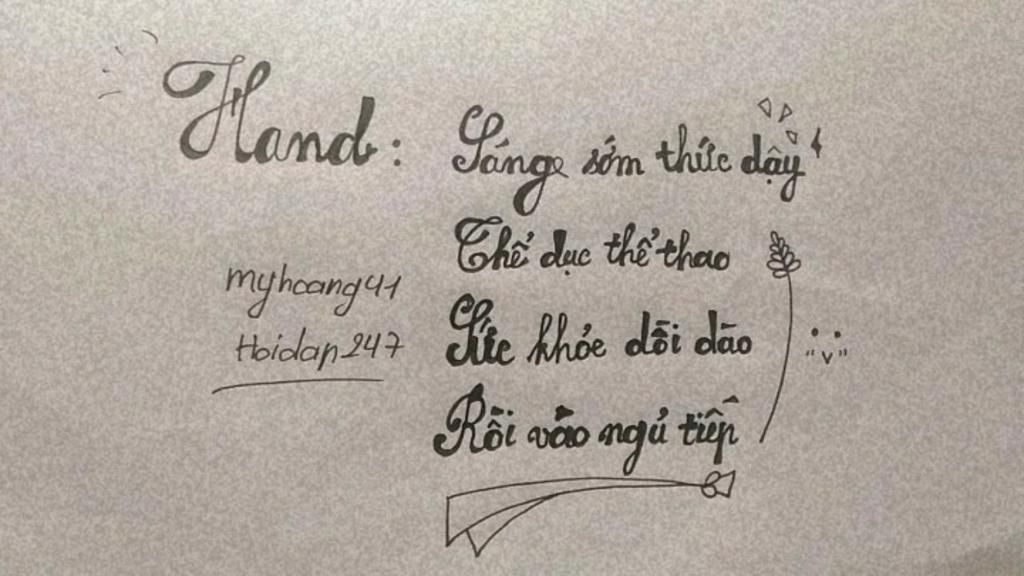 Hand:
Sáng sớm thức dậy
Thể dục thể thao
Sức khỏe dồi dào
Rồi vào ngủ tiếp
myhoang41
Hoidap247